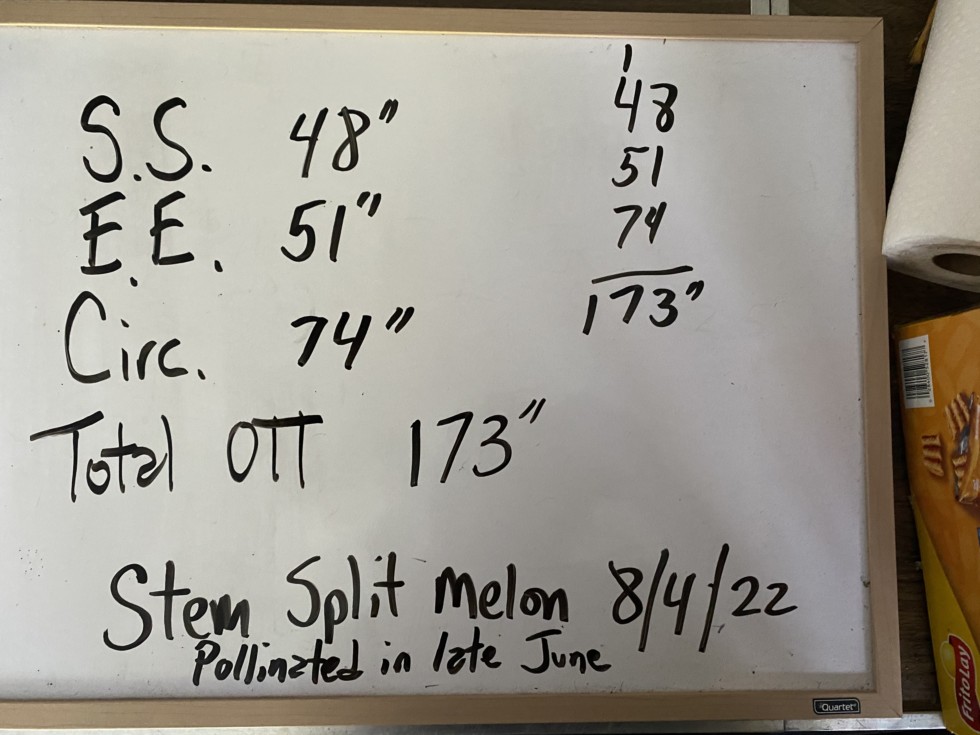 S.S. 48"
E.E. 51"
Circ. 74"
Total OTT 173"
1
48
51
74
173"
Stem Split Melon 8/4/22
Pollinated in late June
Quartet
FritoLay